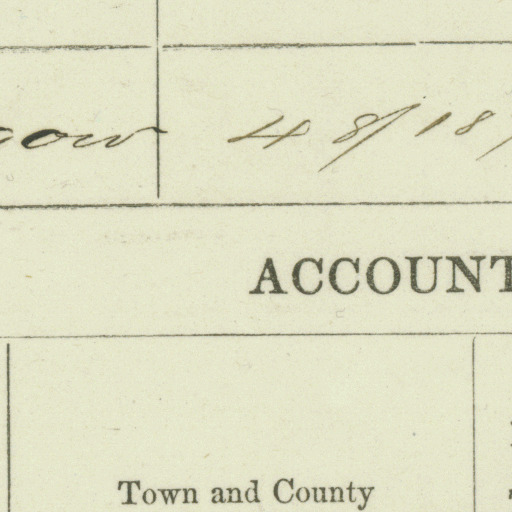 48/18
ACCOUNT
Town and County